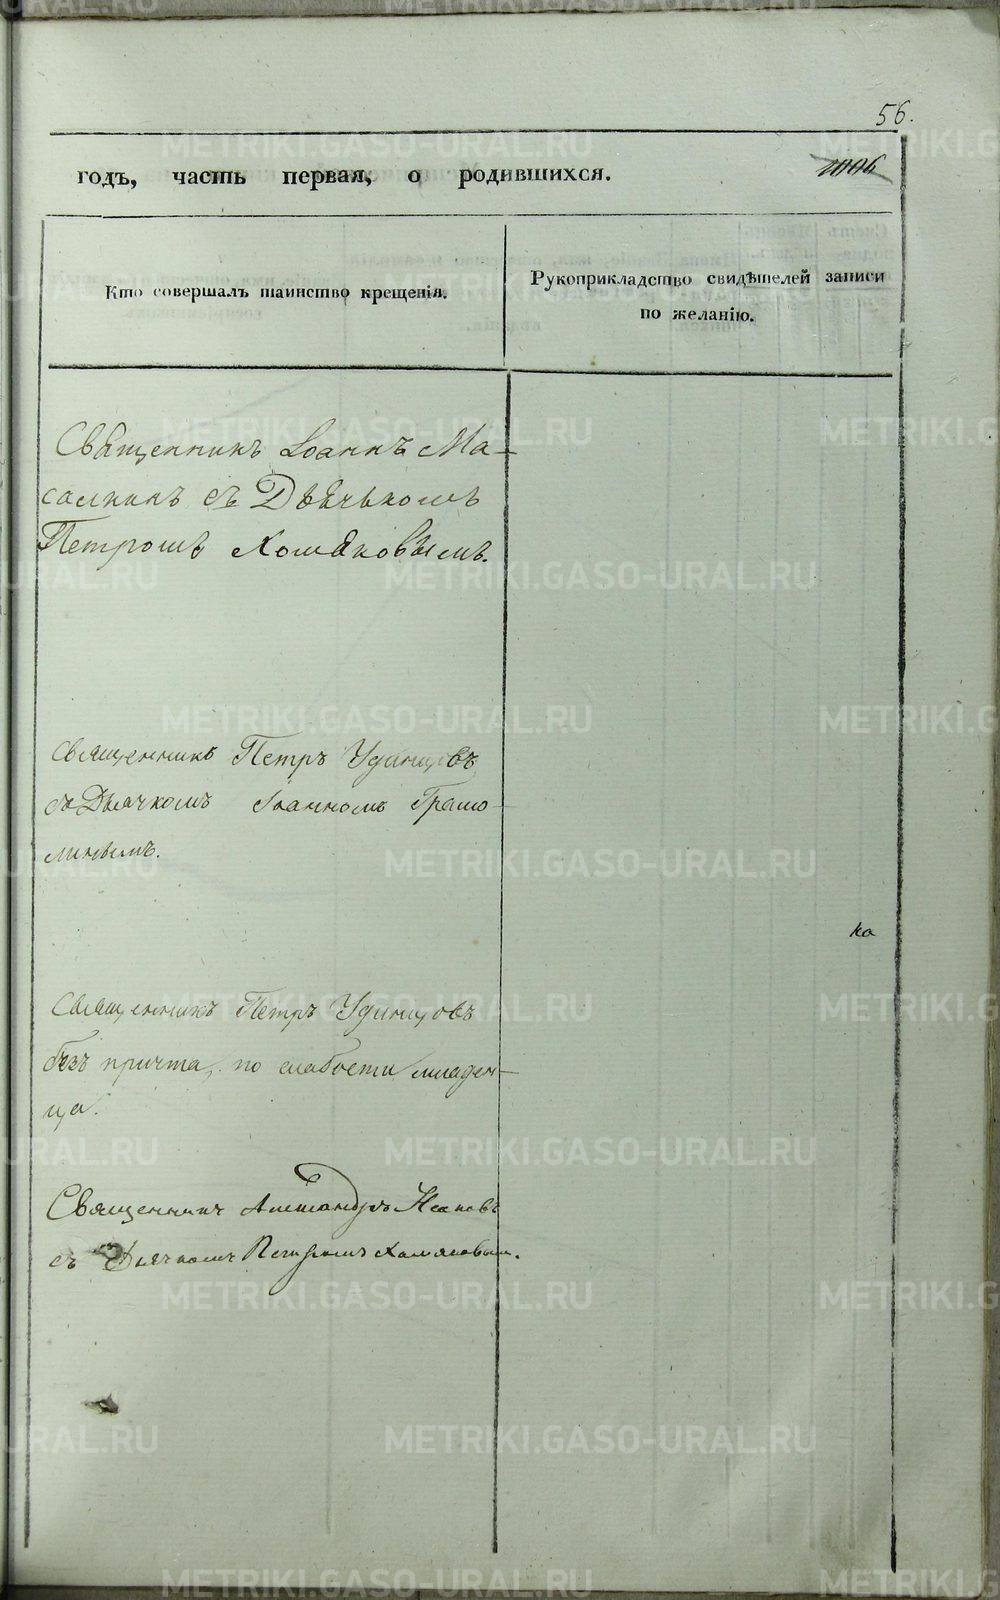 56.
годъ, часть первая, о родившихся.
Кто совершалъ таинство крещенія.
Рукоприкладство свидѣтелей записи
по желанію.
Священникъ Іоаннъ Ма-
самкинъ съ Дьячькомъ
Петромъ Хомяковымъ.
Священникъ Петръ Удинцовъ
съ Дьячкомъ Іоанномъ Грамо-
линымъ.
ка
Священникъ Петръ Удинцовъ
безъ причта, по слабости младен-
ца.
Священникъ Александръ
съ Дьячкомъ Петромъ Хомяковым.
METRIKI.GASO-URAL.RU